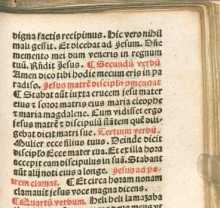 digna factis recipimus. Hic vero nihil
mali gessit. Et dicebat ad jesum. Dñe
memento mei dum veneris in regnum
tuũ. Rñdit Jesus. ¶ Secundũ verbũ
Amen dico tibi hodie mecum eris in pa
radiso. Jesus matrẽ discipĺo
¶ Stabãt aũt iuxta crucem jesu mater
eius ⁊ soror matris eius maria cleophe
⁊ maria magdalene. Cum vidisset ergo
jesus matrẽ ⁊ discipulũ stãtem quẽ dili
gebat dicit matri sue. ¶ Tertium verbũ.
Mulier ecce filius tuus. Deinde dicit
discipĺo Ecce mater tua. Et ex illa hora
accepit eam discipulus in suã. Stabant
aũt alij noti eius a longe. Jesus ad pa
trem clamat. ¶ Et circa horam nonam
clamavit jesus voce magna dicens.
¶ Quartũ verbum. Heli heli lamazaba